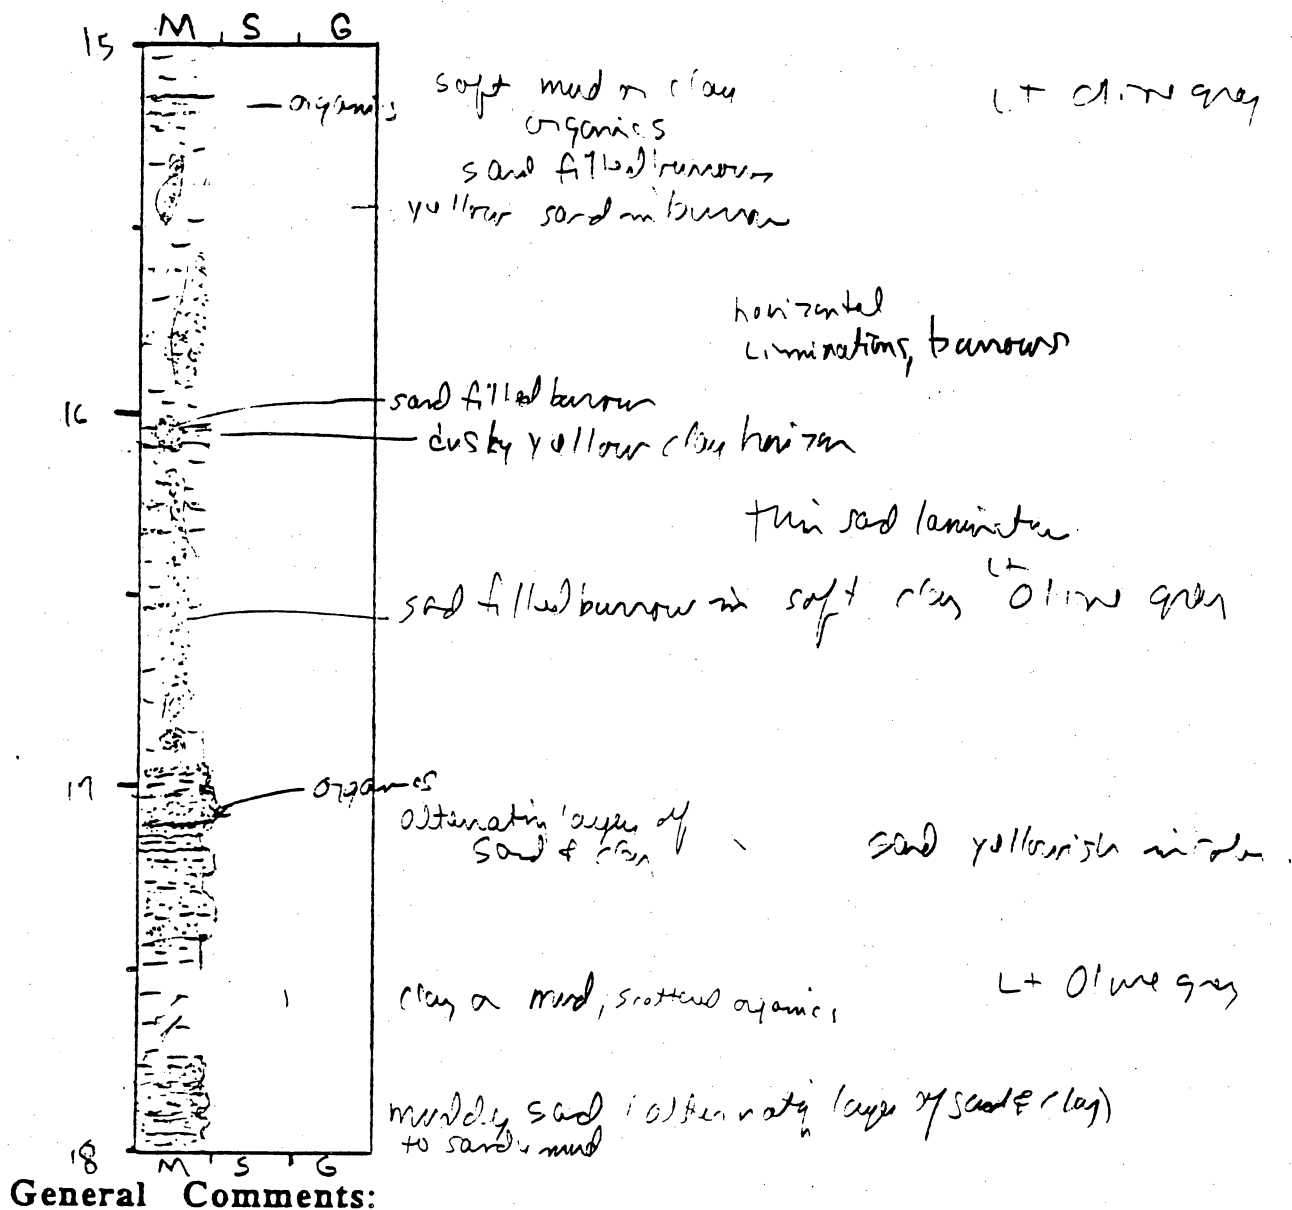 M S G
15
organics
soft mud or clay
Lt olive gray
organics
sand filled burrows
yellow sand in burrow
horizontal
liminations, burrows
16
sand filled burrow
dusky yellow clay horizon
thin sand laminatur
sand filled burrow in soft clay Lt Olive gray
17
organics
alternatin layers of
sand & clay
sand yellowish in color
clay or mud, scattered organics
Lt Olive gray
muddy sand (alternating layers of sand & clay)
to sandy mud
18
M S G
General Comments: